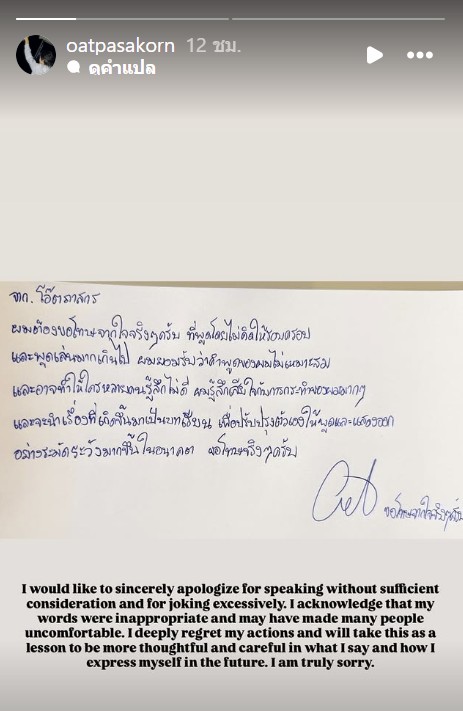 oatpasakorn 12 ชม.
ดูคำแปล
จาก. โอ๊ตภาสกร
ผมต้องขอโทษจากใจจริงๆครับ ที่พูดโดยไม่คิดให้รอบครอบ
และพูดเล่นมากเกินไป ผมยอมรับว่าคำพูดของผมไม่เหมาะสม
และอาจทำให้ใครหลายคนรู้สึกไม่ดี ผมรู้สึกเสียใจกับการกระทำของผมมากๆ
และจะนำเรื่องที่เกิดขึ้นมาเป็นบทเรียน เพื่อปรับปรุงตัวเองให้พูดและแสดงออก
อย่างระมัดระวังมากขึ้นในอนาคต ขอโทษจริงๆครับ
ขอโทษจากใจจริงๆครับ
I would like to sincerely apologize for speaking without sufficient
consideration and for joking excessively. I acknowledge that my
words were inappropriate and may have made many people
uncomfortable. I deeply regret my actions and will take this as a
lesson to be more thoughtful and careful in what I say and how I
express myself in the future. I am truly sorry.